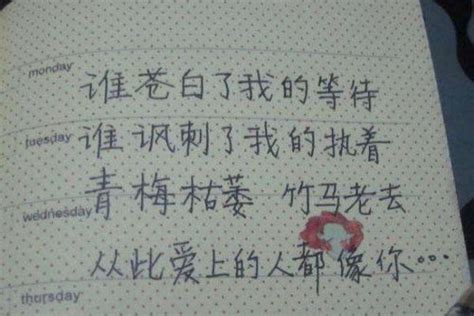 monday
谁苍白了我的等待
tuesday
谁讽刺了我的执着
青梅枯萎 竹马老去
wednesday
从此爱上的人都像你…
thursday